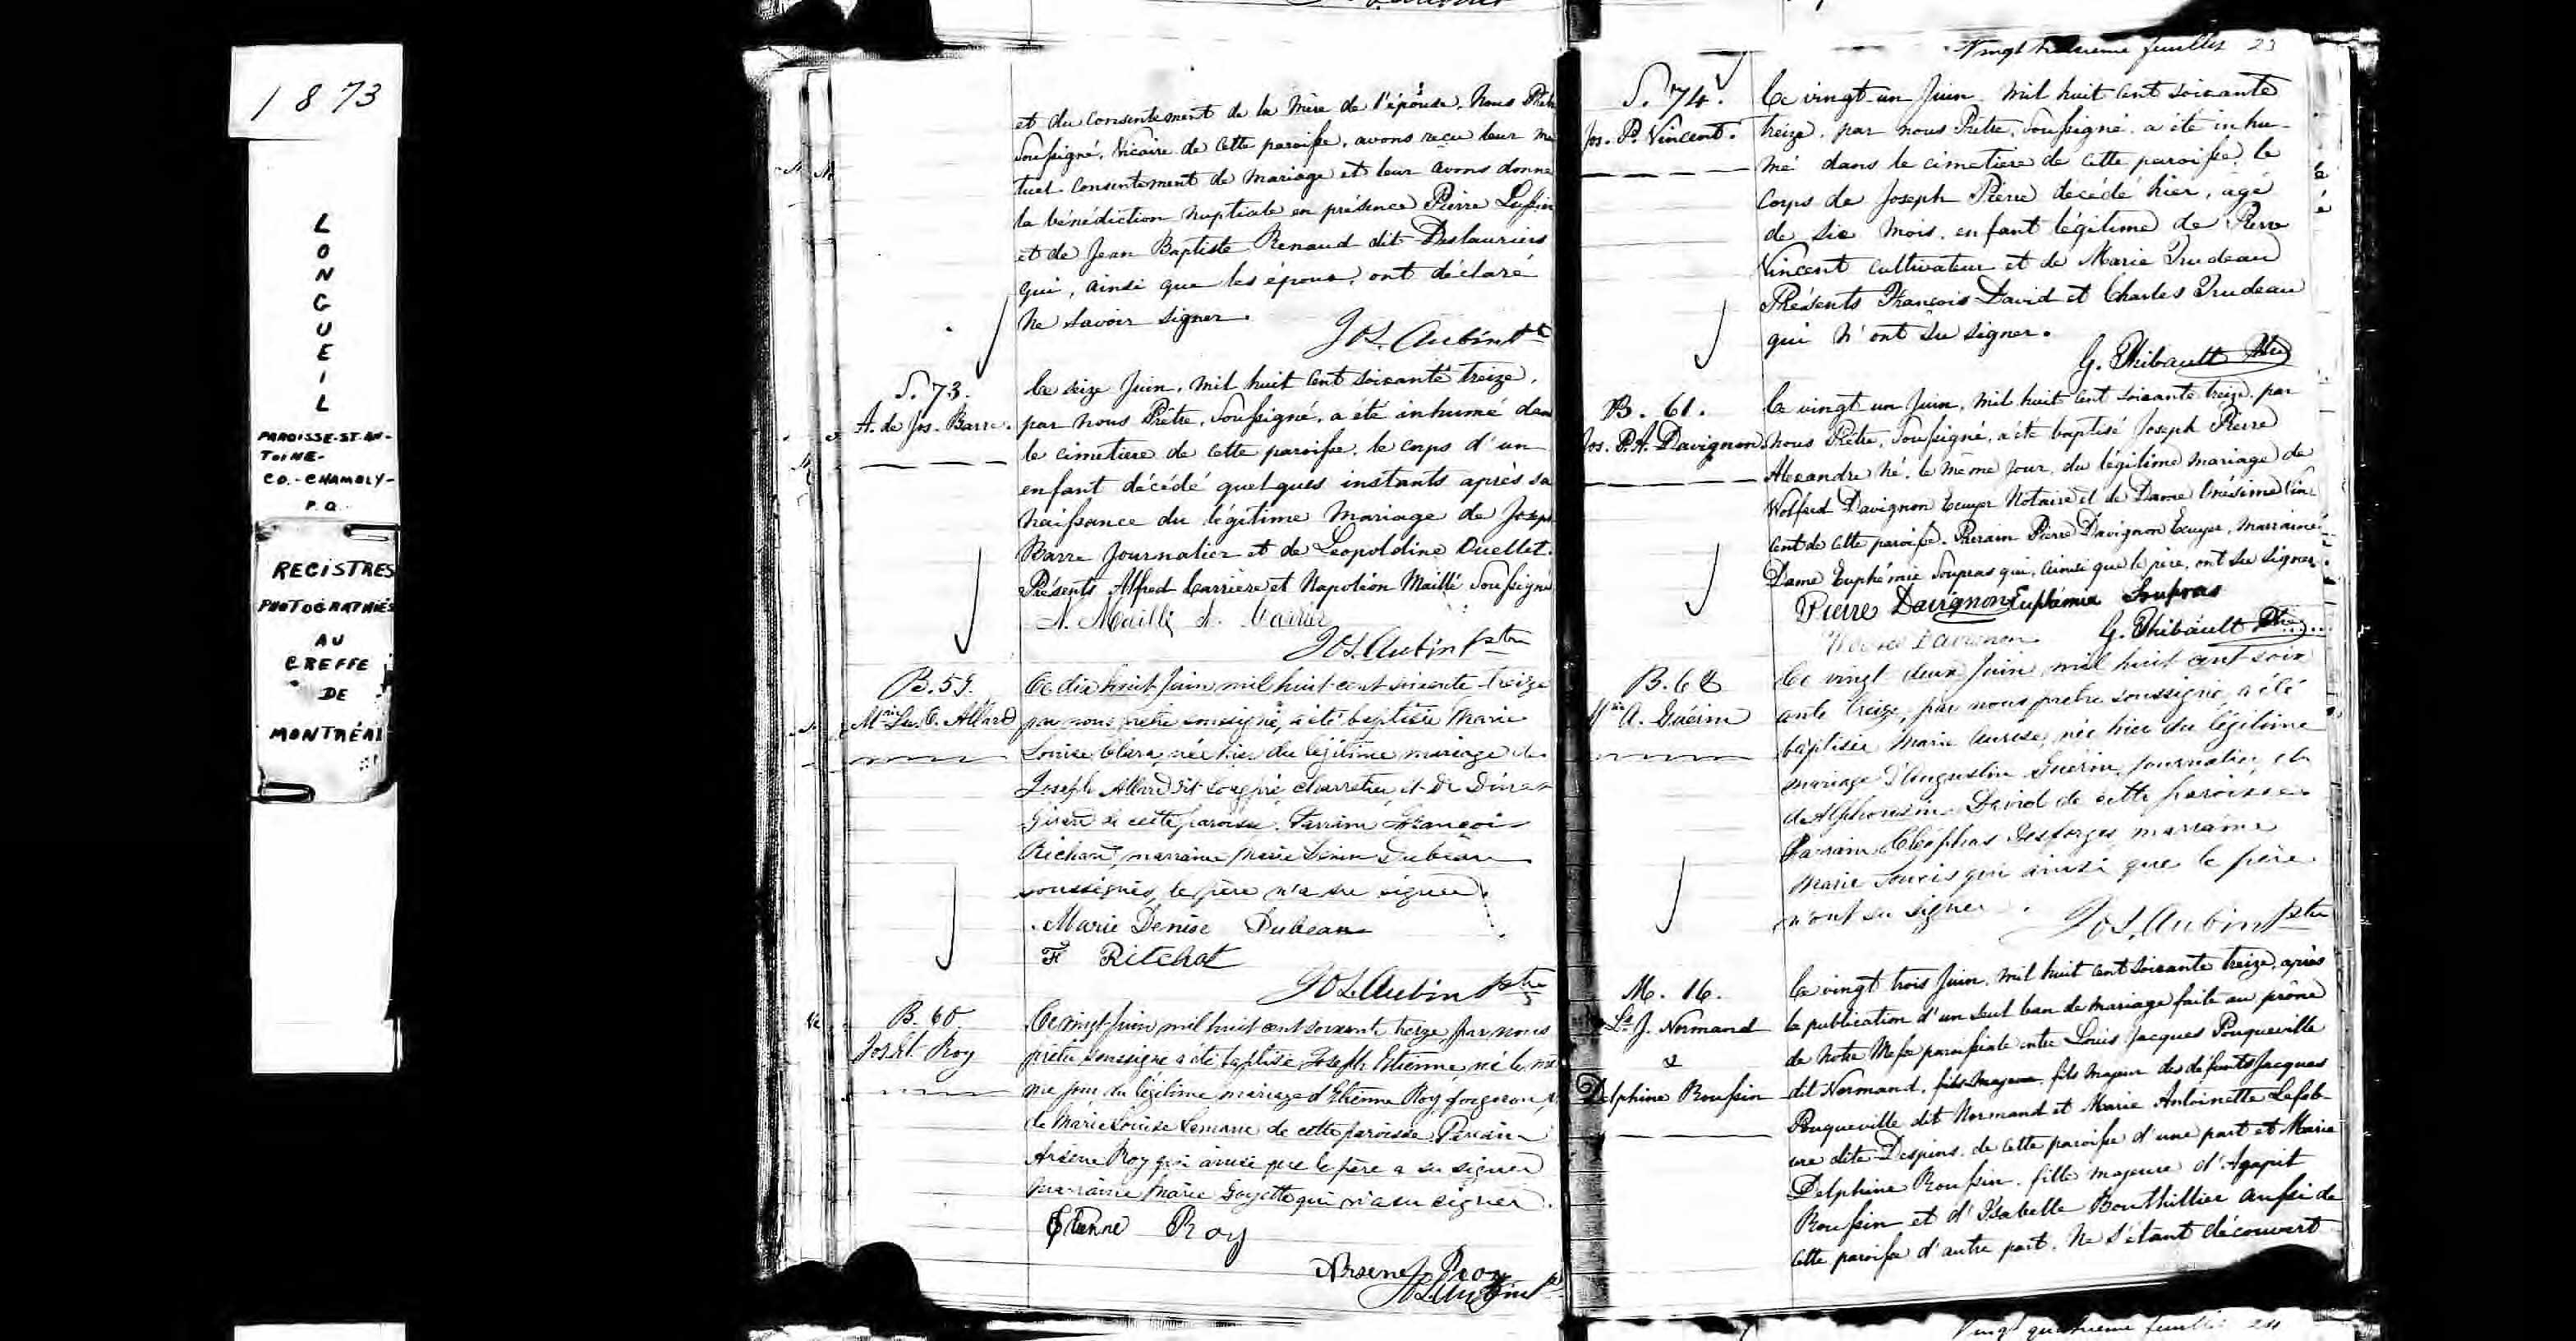 1873
LONGUEUIL
PAROISSE-ST-AN-
TOINE-
CO.-CHAMBLY-
P.Q.
REGISTRES
PHOTOGRAPHIÉS
AU
GREFFE
DE
MONTRÉAL
et du consentement de la Mère de l'épouse. Nous Prêtre
Soussigné, Vicaire de cette paroisse, avons reçu leur mu
tuel consentement de mariage et leur avons donné
la bénédiction nuptiale en présence Pierre
et de Jean Baptiste Renaud dit Deslauriers
qui, ainsi que les époux, ont déclaré
ne savoir signer.
Jos. Aubin Ptre
S. 73.
A. de Jos. Barre.
Ce seize Juin, mil huit cent soixante treize,
par nous Prêtre, Soussigné, a été inhumé dans
le cimetière de cette paroisse, le corps d'un
enfant décédé quelques instants après sa
naissance du légitime Mariage de Joseph
Barre Journalier et de Leopoldine Ouellet.
Présents Alfred Carrière et Napoléon Maillé Soussignés
N. Maillé A. Carrier
Jos. Aubin Ptre
B. 59.
Mrie Lse C. Allard
Ce dix huit Juin mil huit cent soixante treize
par nous prêtre soussigné, a été baptisée Marie
Louise Clara, née hier du légitime mariage de
Joseph Allard dit charretier et de
Girard de cette paroisse. Parrain François
Richard, marraine Marie Denise Dubeau
soussignés, le père n'a su signer
Marie Denise Dubeau
F Ritchot
Jos. Aubin Ptre
B. 60
Jos. Et. Roy
Ce vingt Juin mil huit cent soixante treize, par nous
prêtre soussigné a été baptisé Joseph Etienne, né le mê
me jour du légitime mariage d'Etienne Roy forgeron et
de Marie Louise de cette paroisse. Parrain
Arsène Roy qui ainsi que le père a su signer
marraine Marie Goyette qui n'a su signer.
Etienne Roy
Arsene Roy
Jos. Aubin Ptre
Vingt troisième feuillet 23
S. 74.
Jos. P. Vincent.
Ce vingt-un Juin mil huit cent soixante
treize, par nous Prêtre, Soussigné, a été inhu-
mé dans le cimetière de cette paroisse, le
corps de Joseph Pierre décédé hier, âgé
de six mois, enfant légitime de Pierre
Vincent cultivateur et de Marie Trudeau
Présents François David et Charles Trudeau
qui n'ont su signer.
G. Thibault Ptre
B. 61.
Jos. P. A. Davignon.
Ce vingt un Juin, mil huit cent soixante treize, par
nous Prêtre, Soussigné, a été baptisé Joseph Pierre
Alexandre né, le même jour, du légitime mariage de
Wolfred Davignon Ecuyer Notaire et de Dame Onésime Vin
cent de cette paroisse. Parrain Pierre Davignon Ecuyer, Marraine
Dame Euphémie Soupras qui, ainsi que le père, ont su signer.
Pierre Davignon Euphémie Soupras
Davignon
G. Thibault Ptre
B. 62
Mrie A. Guérin
Ce vingt deux Juin mil huit cent soix
ante treize, par nous prêtre soussigné, a été
baptisée Marie née hier du légitime
mariage d'Augustin Guérin, Journalier et
de Alphonsine David de cette paroisse
Parrain Cléophas Desforges marraine
Marie qui ainsi que le père
n'ont su signer.
Jos. Aubin Ptre
M. 16.
Ls J. Normand
&
Delphine Roussin
Ce vingt trois Juin, mil huit cent soixante treize, après
la publication d'un seul ban de mariage faite au prône
de notre Messe paroissiale entre Louis Jacques Pouqueville
dit Normand, fils majeur fils majeur des défunts Jacques
Pouqueville dit Normand et Marie Antoinette Lefeb-
vre dite Despins, de cette paroisse d'une part et Marie
Delphine Roussin, fille majeure d'Agapit
Roussin et d'Isabelle Bouthillier aussi de
cette paroisse d'autre part. Ne s'étant découvert
Vingt quatrième feuillet 24